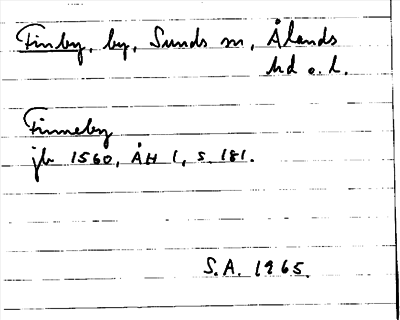 Finby, by, Sunds sn, Ålands
hd o. l.
Finneby
jb 1560, ÅH 1, s. 181.
S.A. 1965.